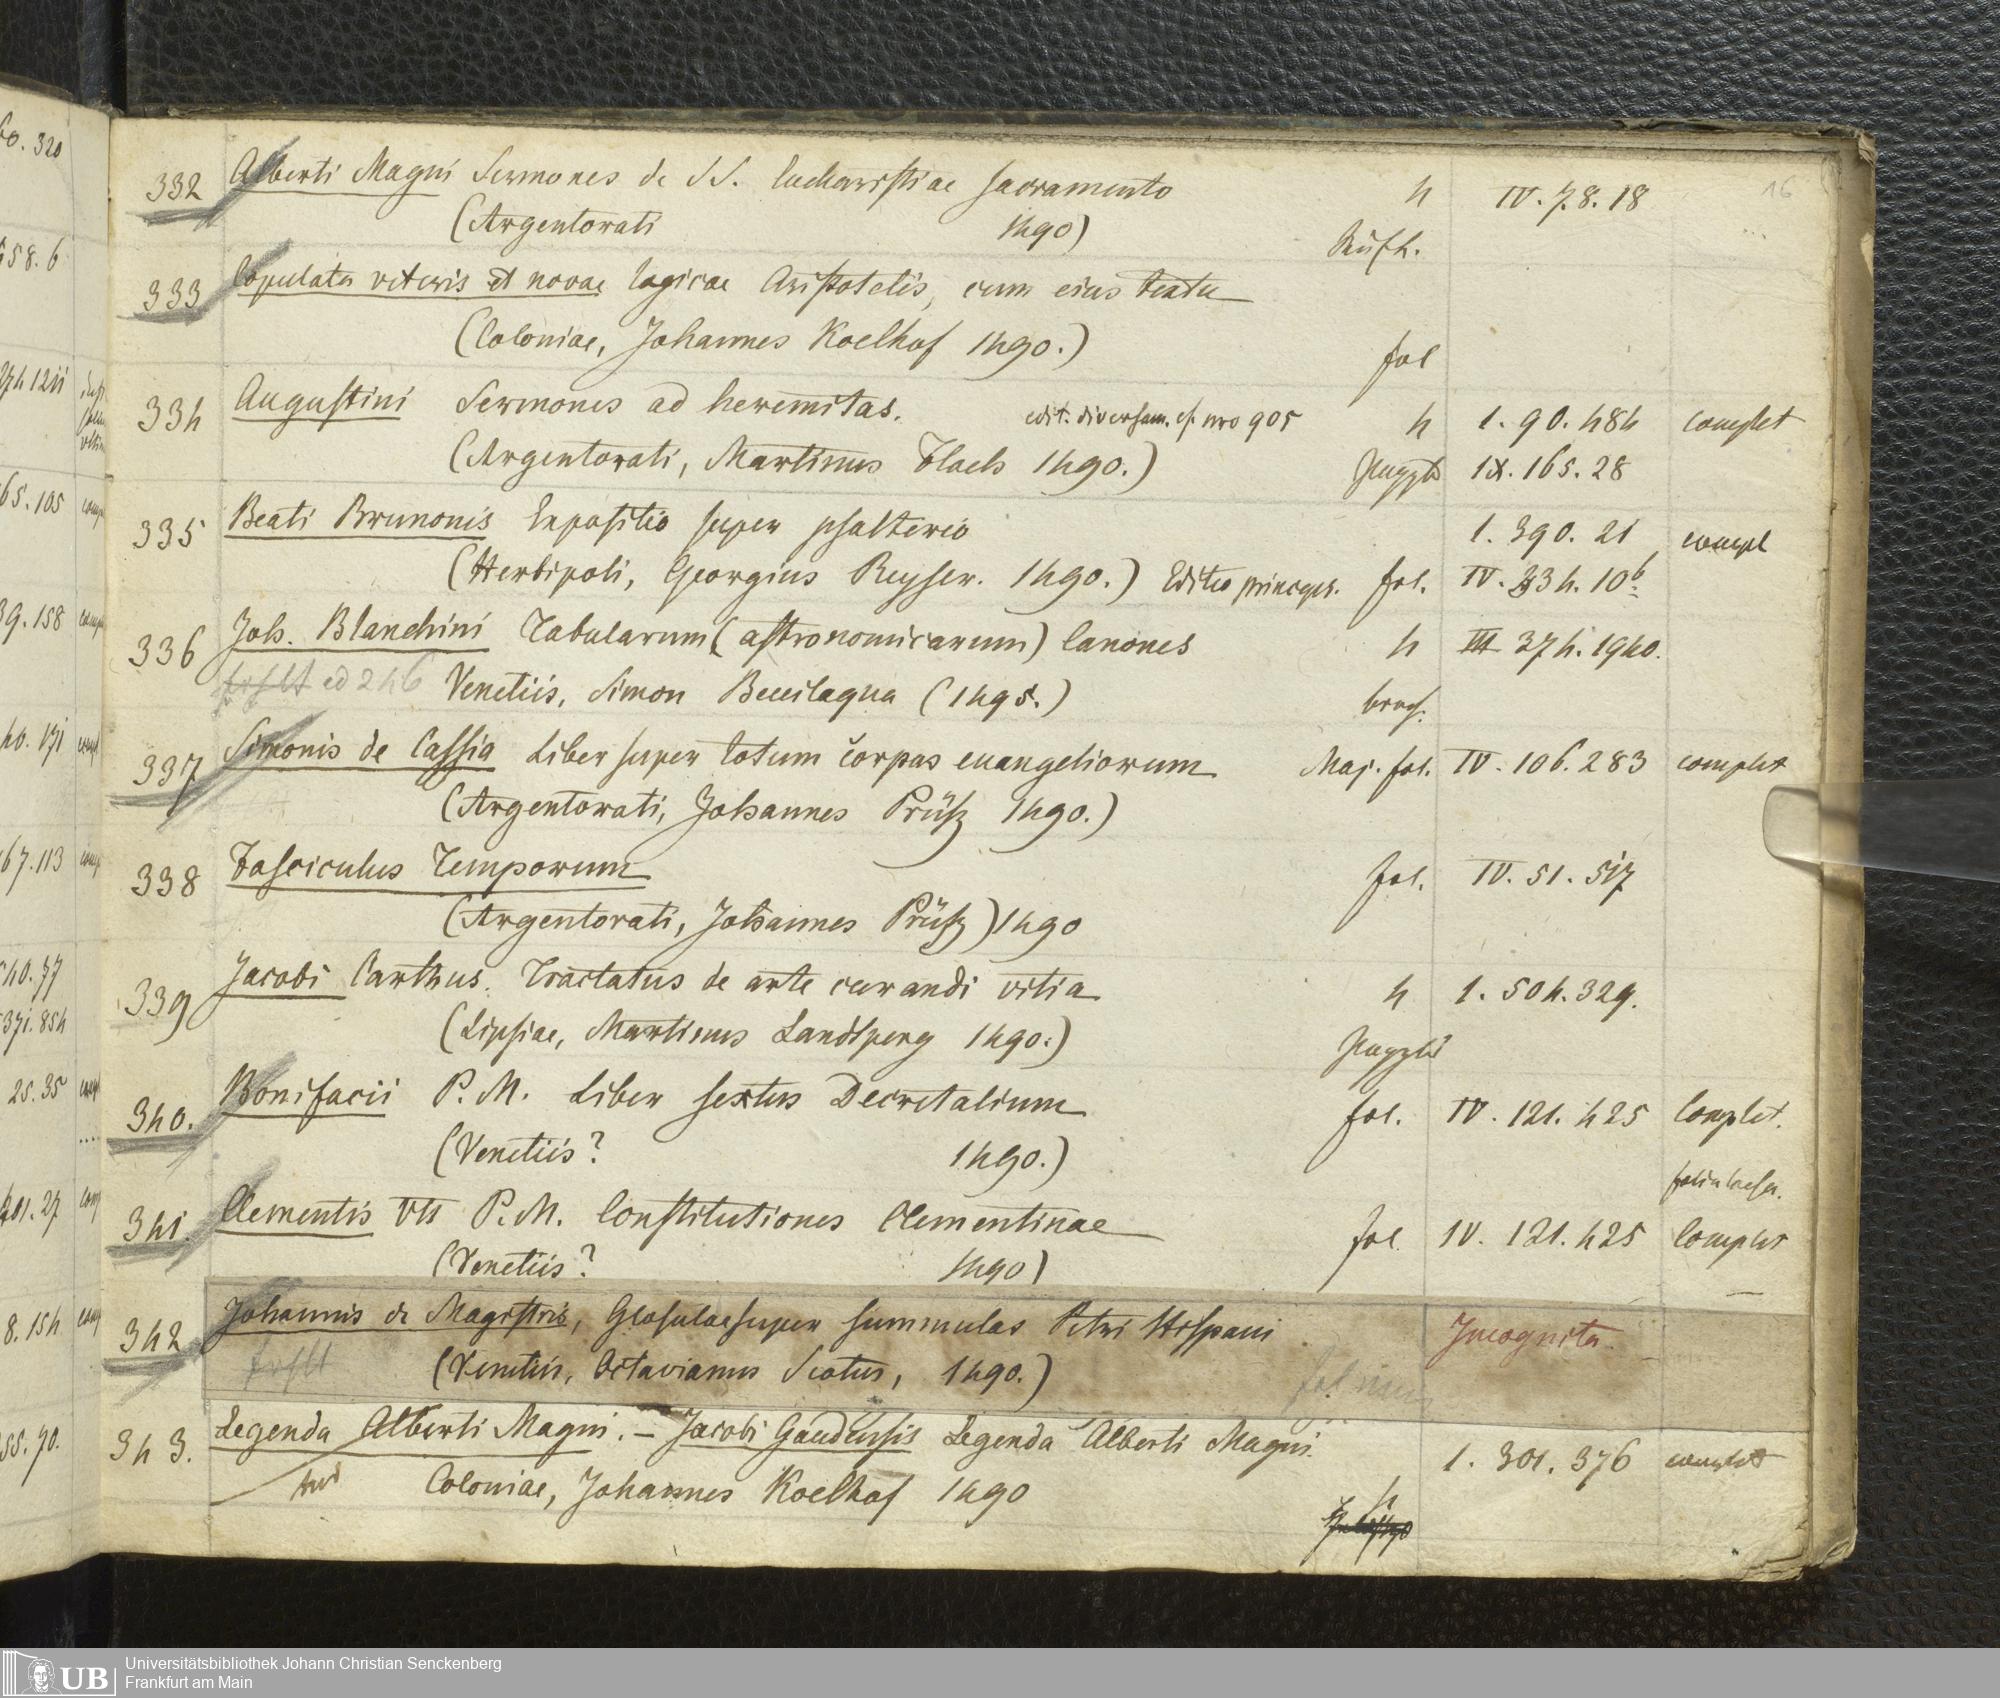 16
332 Alberti Magni Sermones de SS. Eucharistiae sacramento 4 IV. 78. 18
(Argentorati 1490)
333 Copulata veteris et novae logicae Aristotelis, cum eius textu
(Coloniae, Johannes Koelhof 1490.) fol
334 Augustini Sermones ad heremitas. edit. diversam. cf. nro 905 4 1. 90. 484 complet
(Argentorati, Martinus Flach 1490.) IX. 165. 28
335 Beati Brunonis Expositio super psalterio 1. 390. 21 compl
(Herbipoli, Georgius Reyser. 1490.) Editio princeps. fol. IV. 334. 10b.
336 Joh. Blanchini Tabularum (astronomicarum) Canones 4 III 374. 1940.
ed 246 Venetiis, Simon Beuilaqua (1495.) brosch.
337 Simonis de Cassia Liber super totum corpus euangeliorum Maj. fol. IV. 106. 283 complet
(Argentorati, Johannes Prüß 1490.)
338 Fasciculus Temporum fol. IV. 51. 517
(Argentorati, Johannes Prüß) 1490
339 Jacobi Carthus. Tractatus de arte curandi vitia 4 1. 504. 329.
(Lipsiae, Martinus Landsperg 1490.)
340. Bonifacii P. M. Liber sextus Decretalium fol. IV. 121. 425 Complet.
(Venetiis? 1490.) folia laesa.
341. Clementis Vti P. M. Constitutiones Clementinae fol. IV. 121. 425 Complet
(Venetiis? 1490)
342 Johannis de Magistris, Glosulae super summulas Petri Hispani Incognita.
fehlt (Venetiis, Octavianus Scotus, 1490.)
343. Legenda Alberti Magni. – Jacobi Gaudensis Legenda Alberti Magni. 1. 301. 376 complet
Coloniae, Johannes Koelhof 1490 4
UB Universitätsbibliothek Johann Christian Senckenberg
Frankfurt am Main